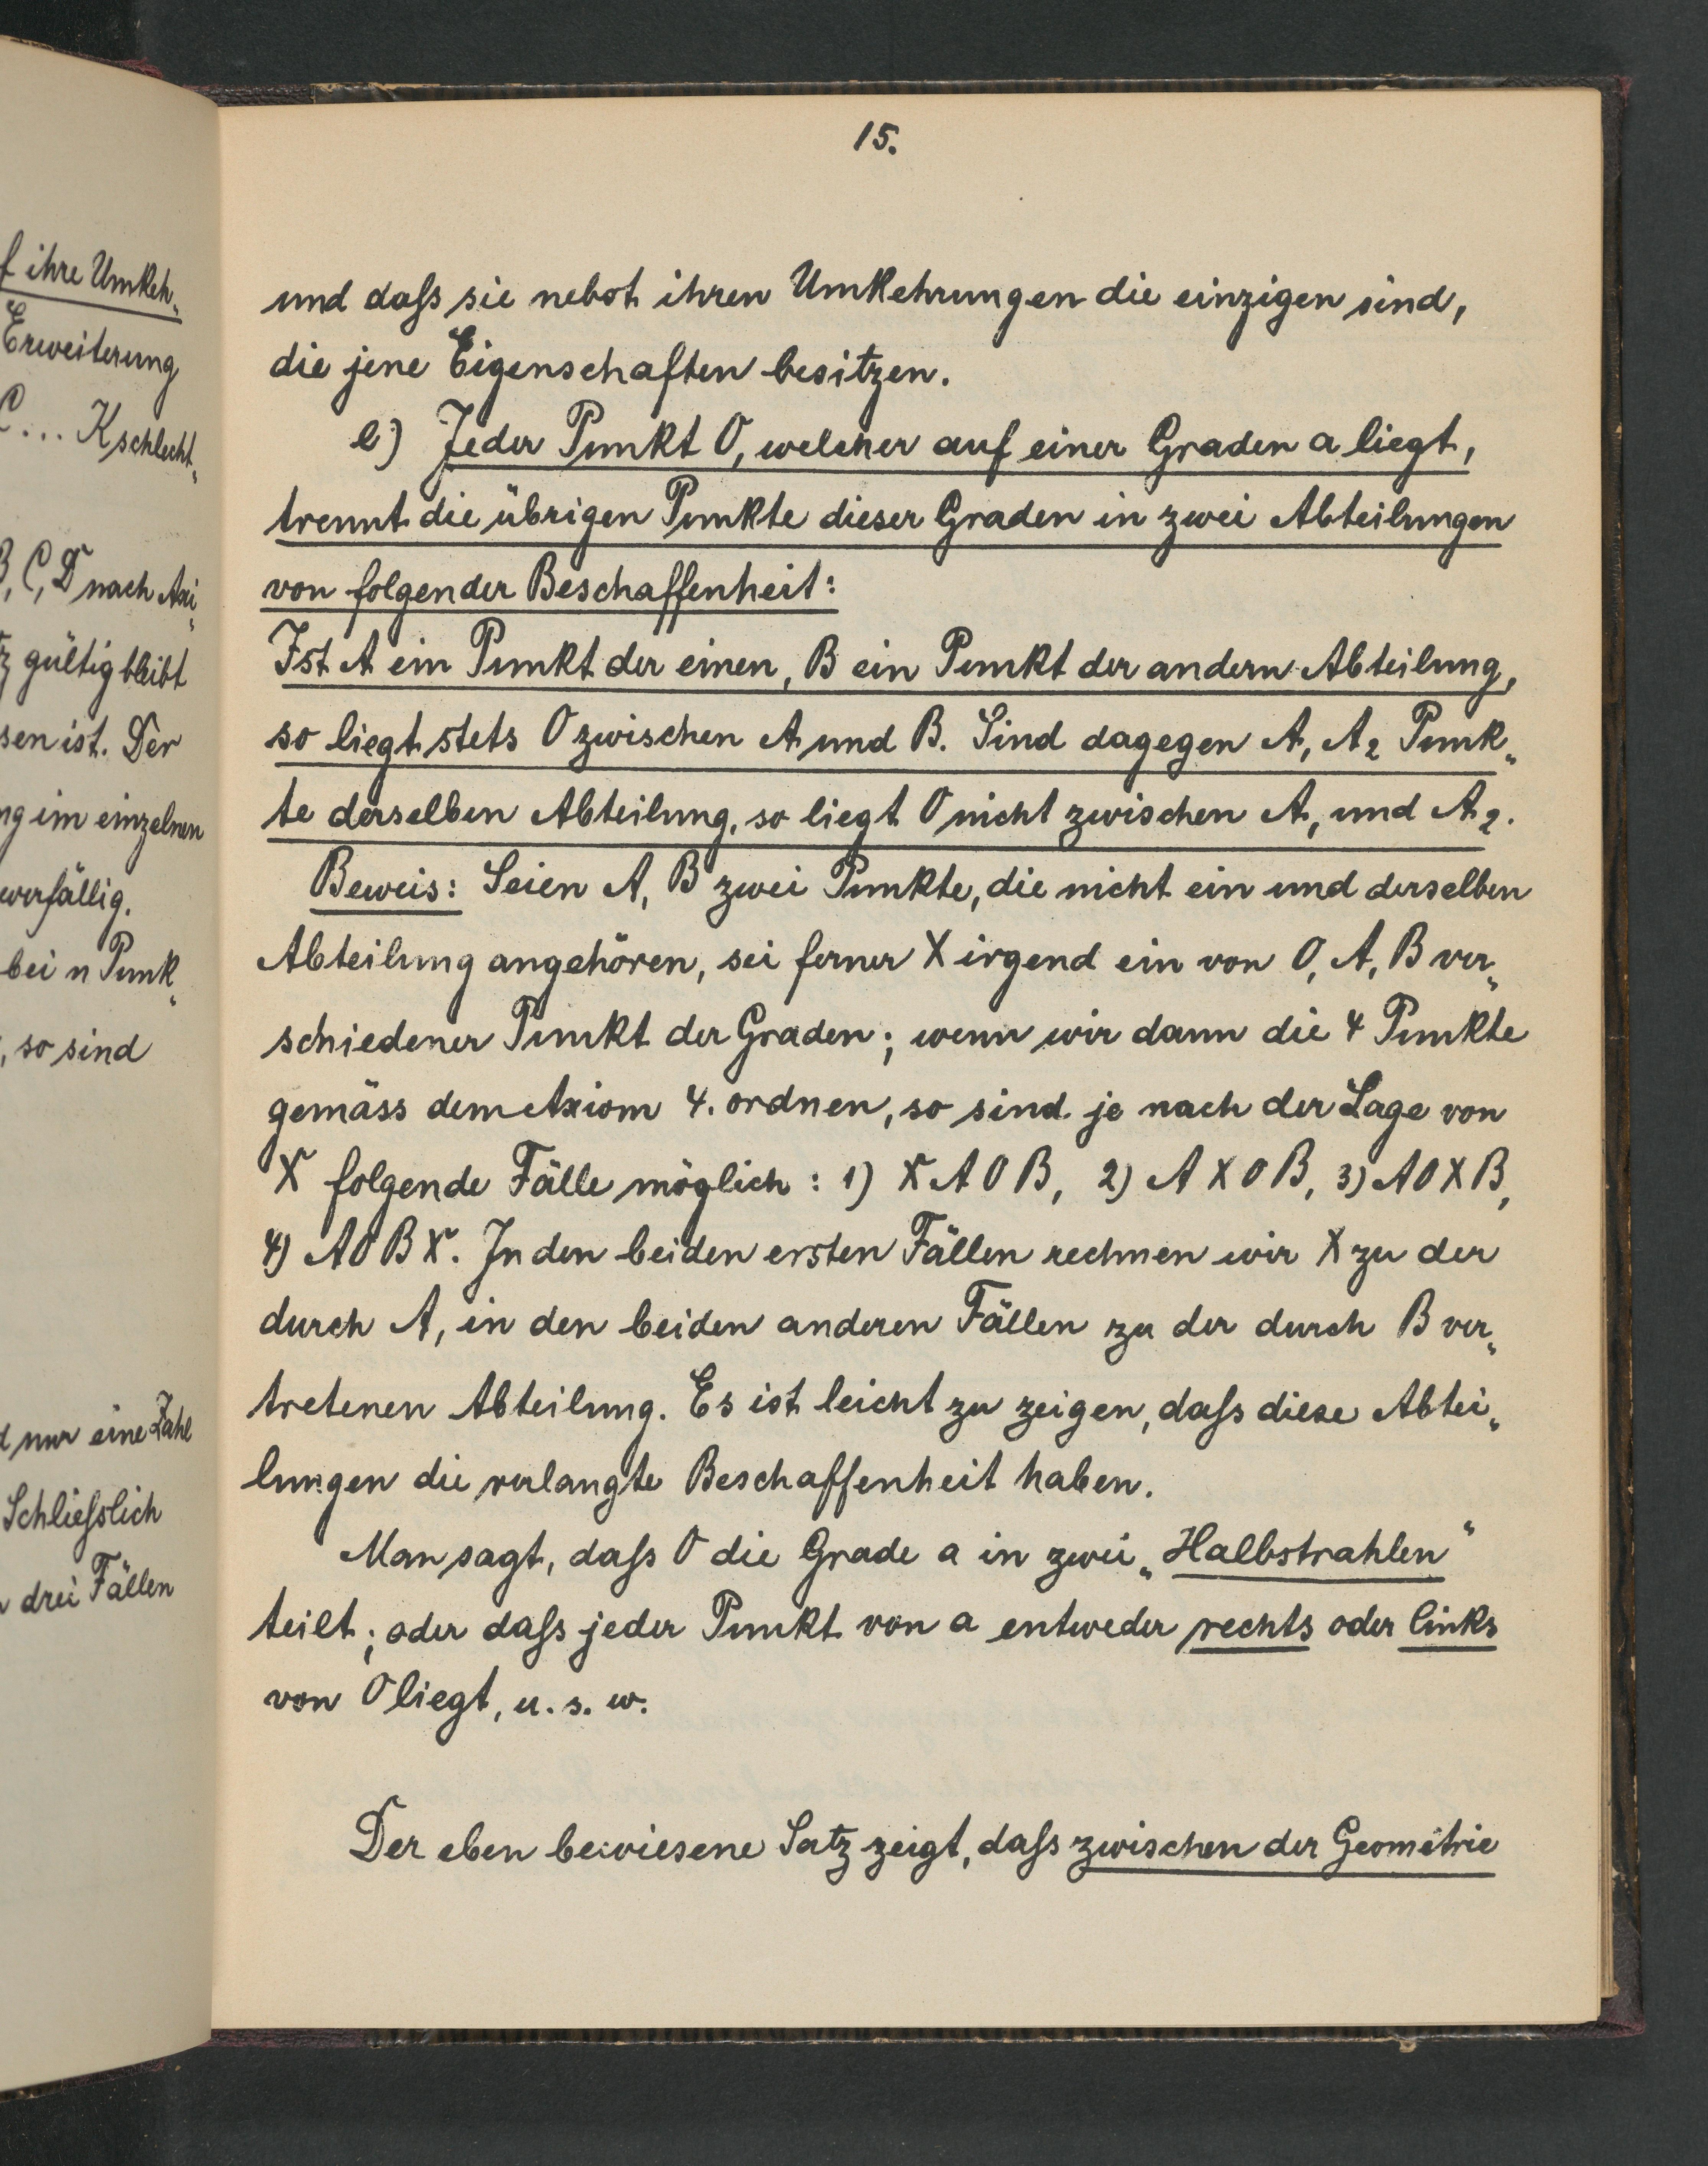 f ihre Umkeh„
Erweiterung
C... K schlecht„
B, C, D nach Axi„
tz gültig bleibt
sen ist. Der
ng im einzelnen
werfällig.
bei n Punk„
, so sind
d nur eine Zahl
Schliesslich
n drei Fällen
15.
und dass sie nebst ihren Umkehrungen die einzigen sind,
die jene Eigenschaften besitzen.
e) Jeder Punkt O, welcher auf einer Graden a liegt,
trennt die übrigen Punkte dieser Graden in zwei Abteilungen
von folgender Beschaffenheit:
Ist A ein Punkt der einen, B ein Punkt der andern Abteilung,
so liegt stets O zwischen A und B. Sind dagegen A₁ A₂ Punk„
te derselben Abteilung, so liegt O nicht zwischen A₁ und A₂.
Beweis: Seien A, B zwei Punkte, die nicht ein und derselben
Abteilung angehören, sei ferner X irgend ein von O, A, B ver„
schiedener Punkt der Graden; wenn wir dann die 4 Punkte
gemäss dem Axiom 4. ordnen, so sind je nach der Lage von
X folgende Fälle möglich: 1) X A O B, 2) A X O B, 3) A O X B,
4) A O B X. In den beiden ersten Fällen rechnen wir X zu der
durch A, in den beiden anderen Fällen zu der durch B ver„
tretenen Abteilung. Es ist leicht zu zeigen, dass diese Abtei„
lungen die verlangte Beschaffenheit haben.
Man sagt, dass O die Grade a in zwei „Halbstrahlen“
teilt; oder dass jeder Punkt von a entweder rechts oder links
von O liegt, u. s. w.
Der eben bewiesene Satz zeigt, dass zwischen der Geometrie